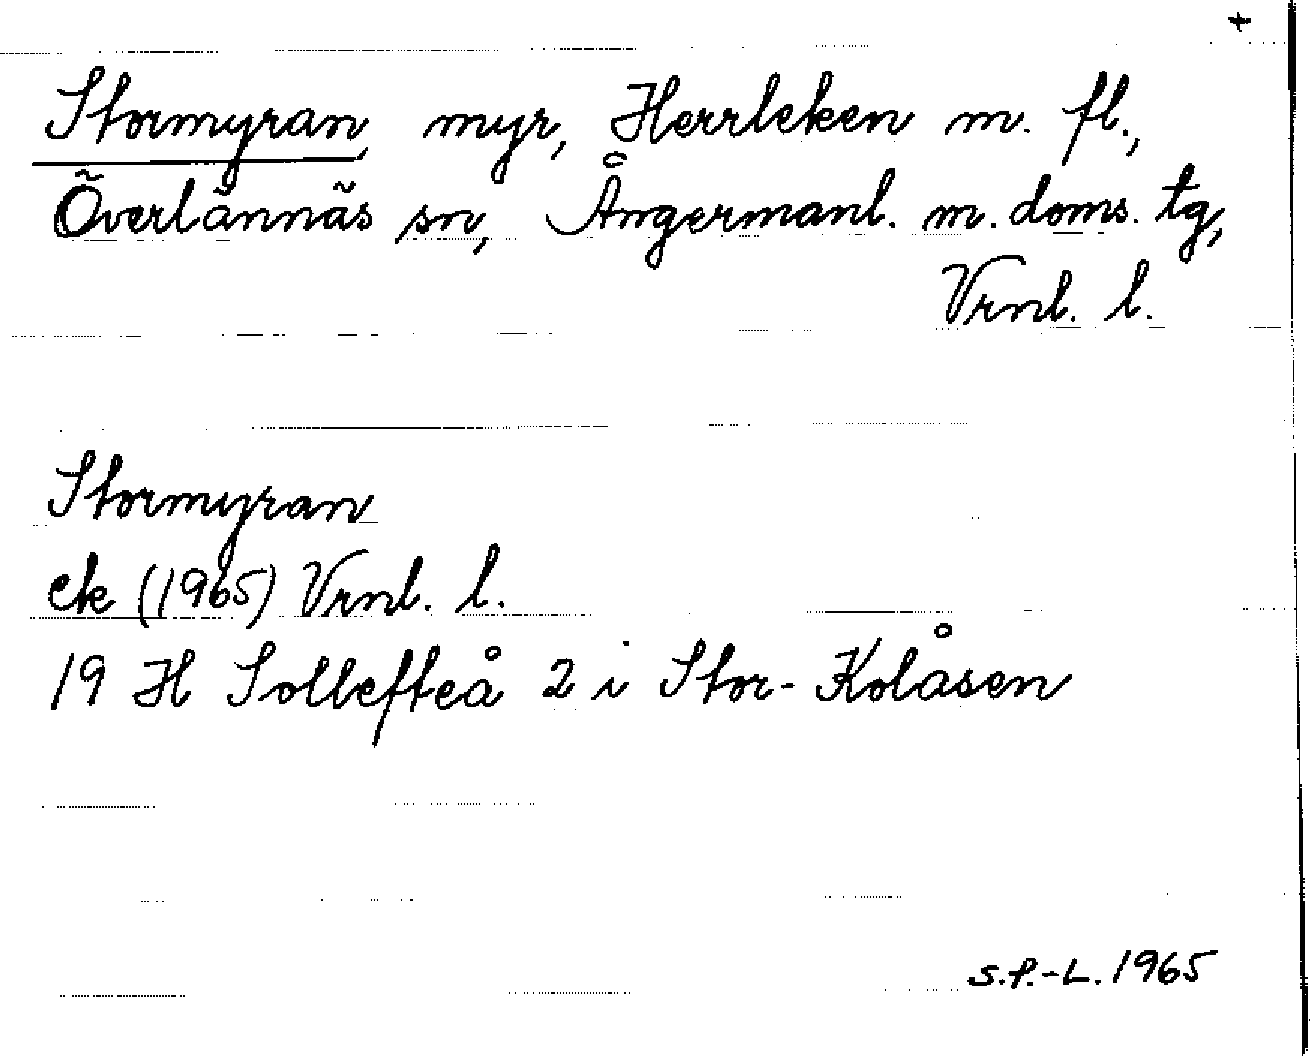 +
Stormyran, myr, Herrleken m. fl.,
Överlännäs sn, Ångermanl. m. doms. tg,
Vrnl. l.
Stormyran
ek (1965) Vrnl. l.
19 H Sollefteå 2 i Stor-Kolåsen
S.P.-L. 1965